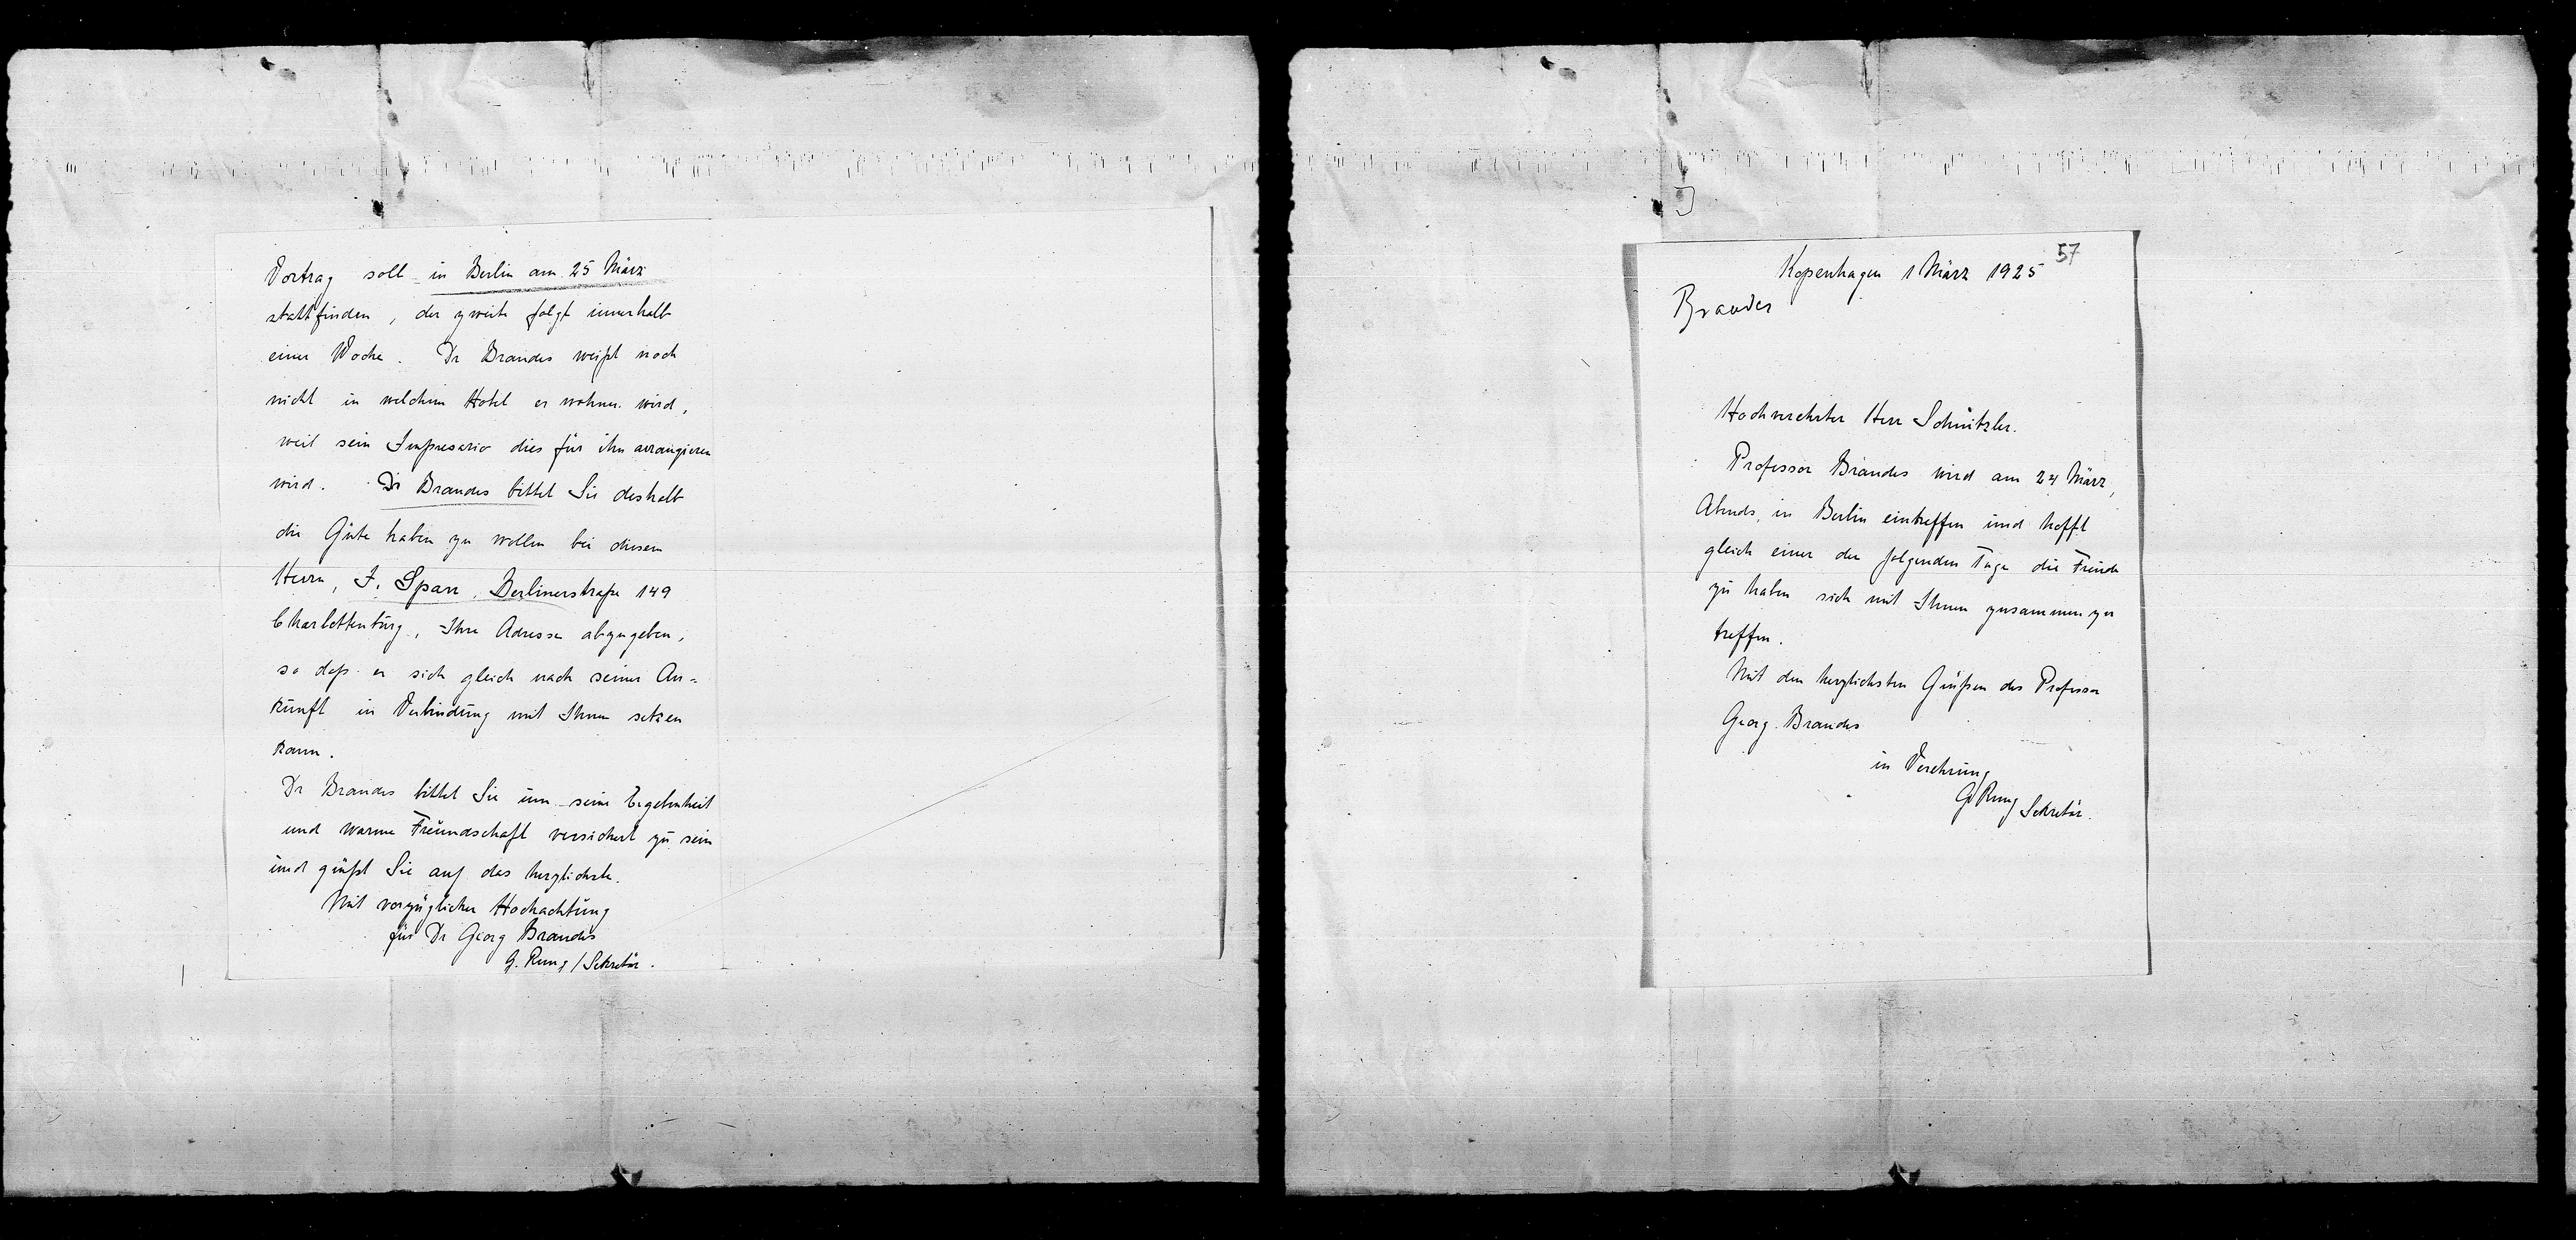 Vortrag soll in Berlin am 25 März
stattfinden, der zweite folgt innerhalb
einer Woche. Dr Brandes weißt noch
nicht in welchem Hotel er wohnen wird,
weil sein Impresario dies für ihn arrangieren
wird. Dr Brandes bittet Sie deshalb
die Güte haben zu wollen bei diesem
Herrn, J. Sparr, Berlinerstraße 149
Charlottenburg, Ihre Adresse abzugeben,
so daß er sich gleich nach seiner An-
kunft in Verbindung mit Ihnen setzen
kann.
Dr Brandes bittet Sie um seine Ergebenheit
und warme Freundschaft versichert zu sein
und grüßt Sie auf das herzlichste.
Mit vorzüglicher Hochachtung
für Dr Georg Brandes
G. Rung / Sekretär.
57
Kopenhagen 1 März 1925
Brandes
Hochverehrter Herr Schnitzler.
Professor Brandes wird am 24 März,
Abends, in Berlin eintreffen und hofft
gleich einer der folgenden Tage die Freude
zu haben sich mit Ihnen zusammen zu
treffen.
Mit den herzlichsten Grüßen des Professor
Georg Brandes
in Verehrung
G Rung Sekretär.